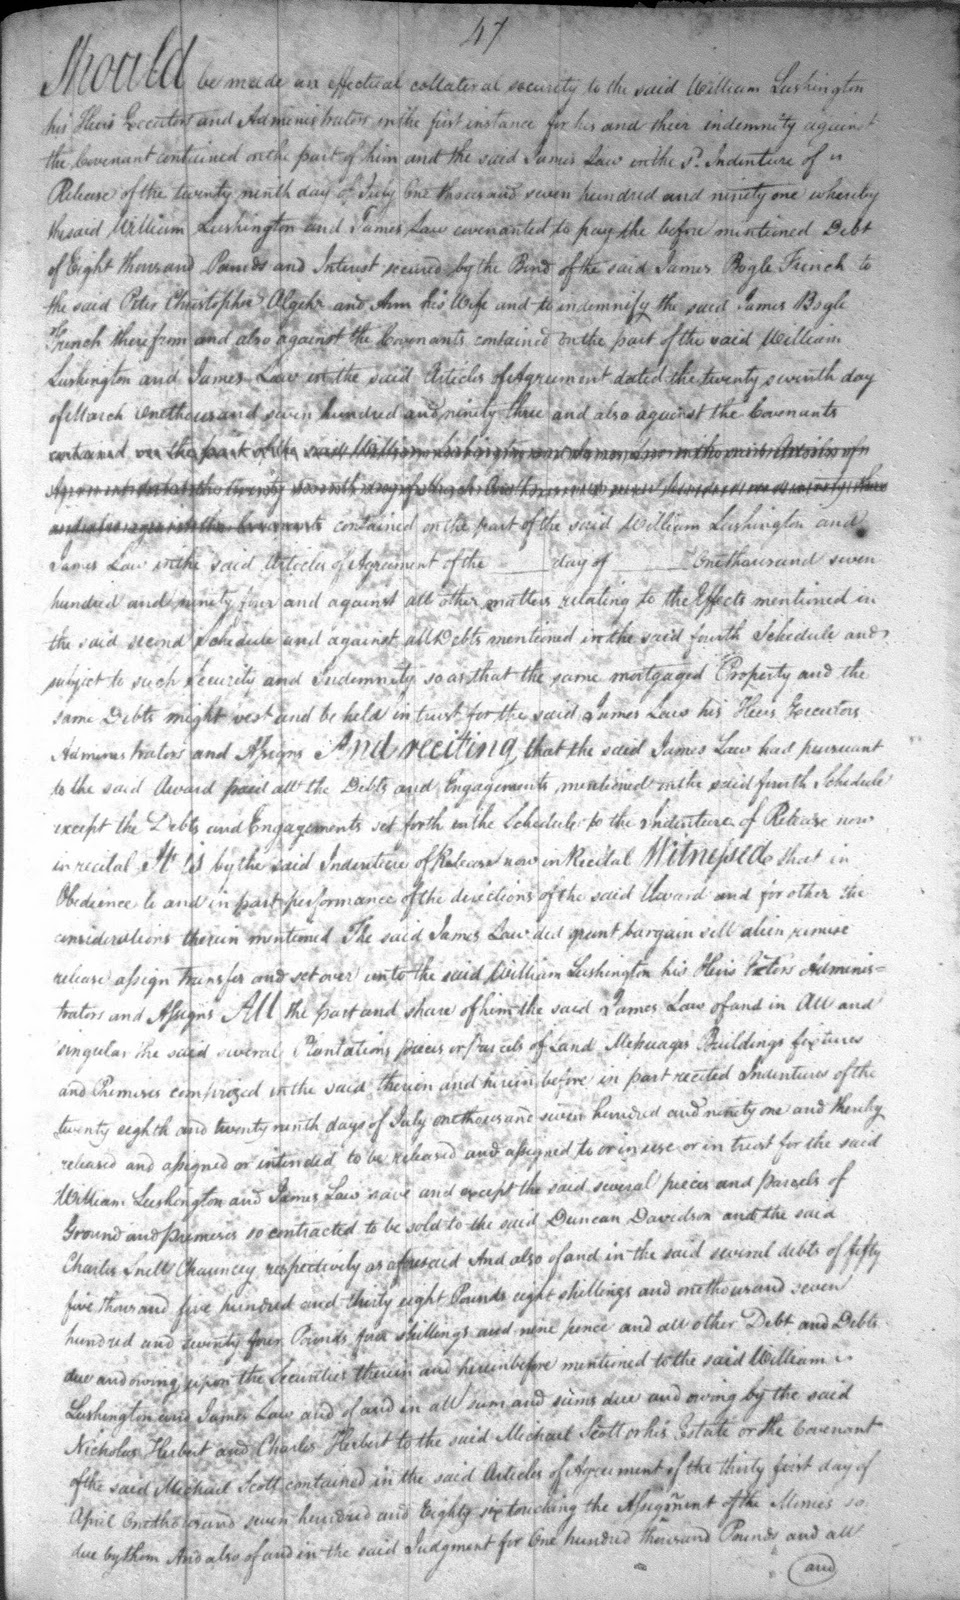 47
Should be made an effectual collateral security to the said William Lushington
his Heirs Executors and Administrators in the first instance for his and their indemnity against
the Covenant contained on the part of him and the said James Law in the sd. Indenture of
Release of the twenty ninth day of July One thousand seven hundred and ninety one whereby
the said William Lushington and James Law covenanted to pay the before mentioned Debt
of Eight thousand Pounds and Interest secured by the Bond of the said James Bogle French to
the said Peter Christopher Algehr and Ann his Wife and to indemnify the said James Bogle
French therefrom and also against the Covenants contained on the part of the said William
Lushington and James Law in the said Articles of Agreement dated the twenty seventh day
of March One thousand seven hundred and ninety three and also against the Covenants
contained on the part of the said William Lushington and James Law in the said Articles of
Agreement dated the twenty seventh day of March One thousand seven hundred and ninety three
and also against the Covenants contained on the part of the said William Lushington and
James Law in the said Articles of Agreement of the day of One thousand seven
hundred and ninety four and against all other matters relating to the Effects mentioned in
the said second Schedule and against all Debts mentioned in the said fourth Schedule and
subject to such Security and Indemnity so as that the same mortgaged Property and the
same Debts might vest and be held in trust for the said James Law his Heirs Executors
Administrators and Assigns And reciting that the said James Law had pursuant
to the said Award paid all the Debts and Engagements mentioned in the said fourth Schedule
except the Debts and Engagements set forth in the Schedule to the Indenture of Release now
in recital It is by the said Indenture of Release now in Recital Witnessed that in
Obedience to and in part performance of the directions of the said Award and for other the
considerations therein mentioned The said James Law did grant bargain sell alien remise
release assign transfer and set over unto the said William Lushington his Heirs Exetors Adminis=
trators and Assigns All the part and share of him the said James Law of and in All and
singular the said several Plantations pieces or Parcels of Land Messuages Buildings fixtures
and Premises comprized in the said therein and herein before in part recited Indentures of the
twenty eighth and twenty ninth days of July one thousand seven hundred and ninety one and thereby
released and assigned or intended to be released and assigned to or in use or in trust for the said
William Lushington and James Law save and except the said several pieces and parcels of
Ground and premises so contracted to be sold to the said Duncan Davidson and the said
Charles Snell Chauncey respectively as aforesaid And also of and in the said several debts of fifty
five thousand five hundred and thirty eight Pounds eight shillings and one thousand seven
hundred and seventy four Pounds four shillings and nine pence and all other Debt and Debts
due and owing upon the Securities therein and herein before mentioned to the said William
Lushington and James Law and of and in all sum and sums due and owing by the said
Nicholas Herbert and Charles Herbert to the said Michael Scott or his Estate or the Covenant
of the said Michael Scott contained in the said Articles of Agreement of the thirty first day of
April One thousand seven hundred and Eighty six touching the Assignment of the Monies so
due by them And also of and in the said Judgment for One hundred thousand Pounds and all
and